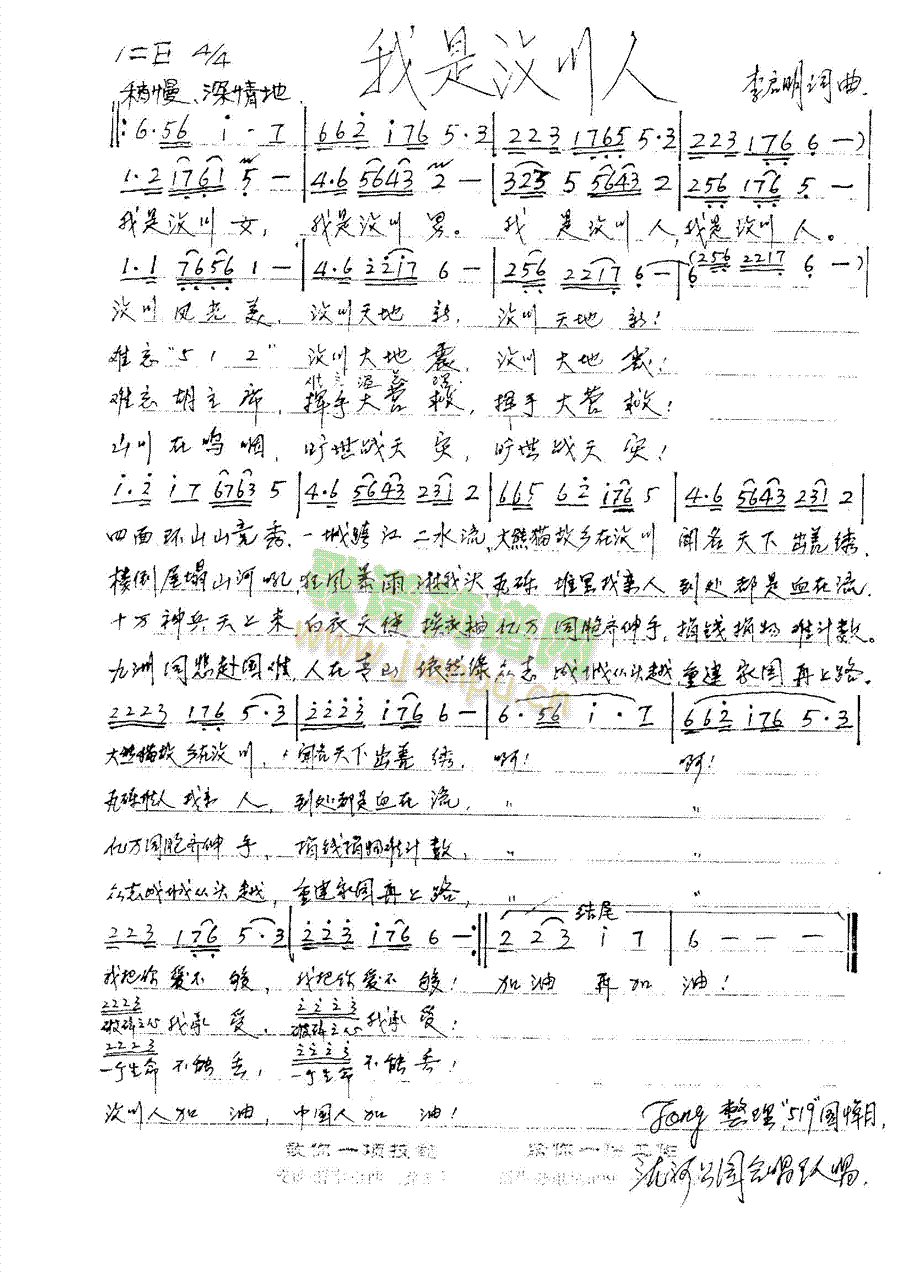 我是汶川人
1=E 4/4
稍慢、深情地
李启明词曲
6·56 i - 7 | 662 176 5·3 | 223 1765 5·3 | 223 176 6 —)
1·2 1761 5 — | 4·6 5643 2 — | 325 5 5643 2 | 256 176 5 —
我是汶川女,我是汶川男。我是汶川人,我是汶川人。
1·1 7656 1 — | 4·6 2217 6 — | 256 2217 6 — | 6 (256 2217 6 —)
汶川风光美,汶川天地新,汶川天地新!
难忘"512"汶川大地震,汶川大地震!
难忘胡主席,挥手大营救,挥手大营救!
山川在呜咽,旷世战天灾,旷世战天灾!
1·2 17 6763 5 | 4·6 5643 231 2 | 665 62 176 5 | 4·6 5643 231 2
四面环山山竞秀,一城跨江二水流,大熊猫故乡在汶川 闻名天下出羌绣。
楼倒屋塌山河吼,狂风暴雨淋我头,瓦砾堆里找亲人 到处都是血在流。
十万神兵天上来 白衣天使 亿万同胞齐伸手,捐钱捐物难计数。
九洲同愁赴国难,人在青山依然绿 众志成城从头越,重建家园再上路。
2223 176 5·3 | 2223 176 6 — | 6·56 i·7 | 662 176 5·3
大熊猫故乡在汶川,闻名天下出羌绣,啊! 啊!
瓦砾 找亲人,到处都是血在流, " "
亿万同胞齐伸手,捐钱捐物难计数, " "
众志成城从头越,重建家园再上路, " "
结尾
223 176 5·3 | 223 176 6 — :‖ 2 23 i 7 | 6 — — — ‖
我把你爱不够,我把你爱不够! 加油再加油!
2223 2223
破碎之心我承受,破碎之心我承受!
2223 2223
一个生命不能丢,一个生命不能丢!
汶川人加油,中国人加油!
整理"519"国悼日,
公园合唱 人唱。
歌谱简谱网
www.jianpu.cn
教你一项技能